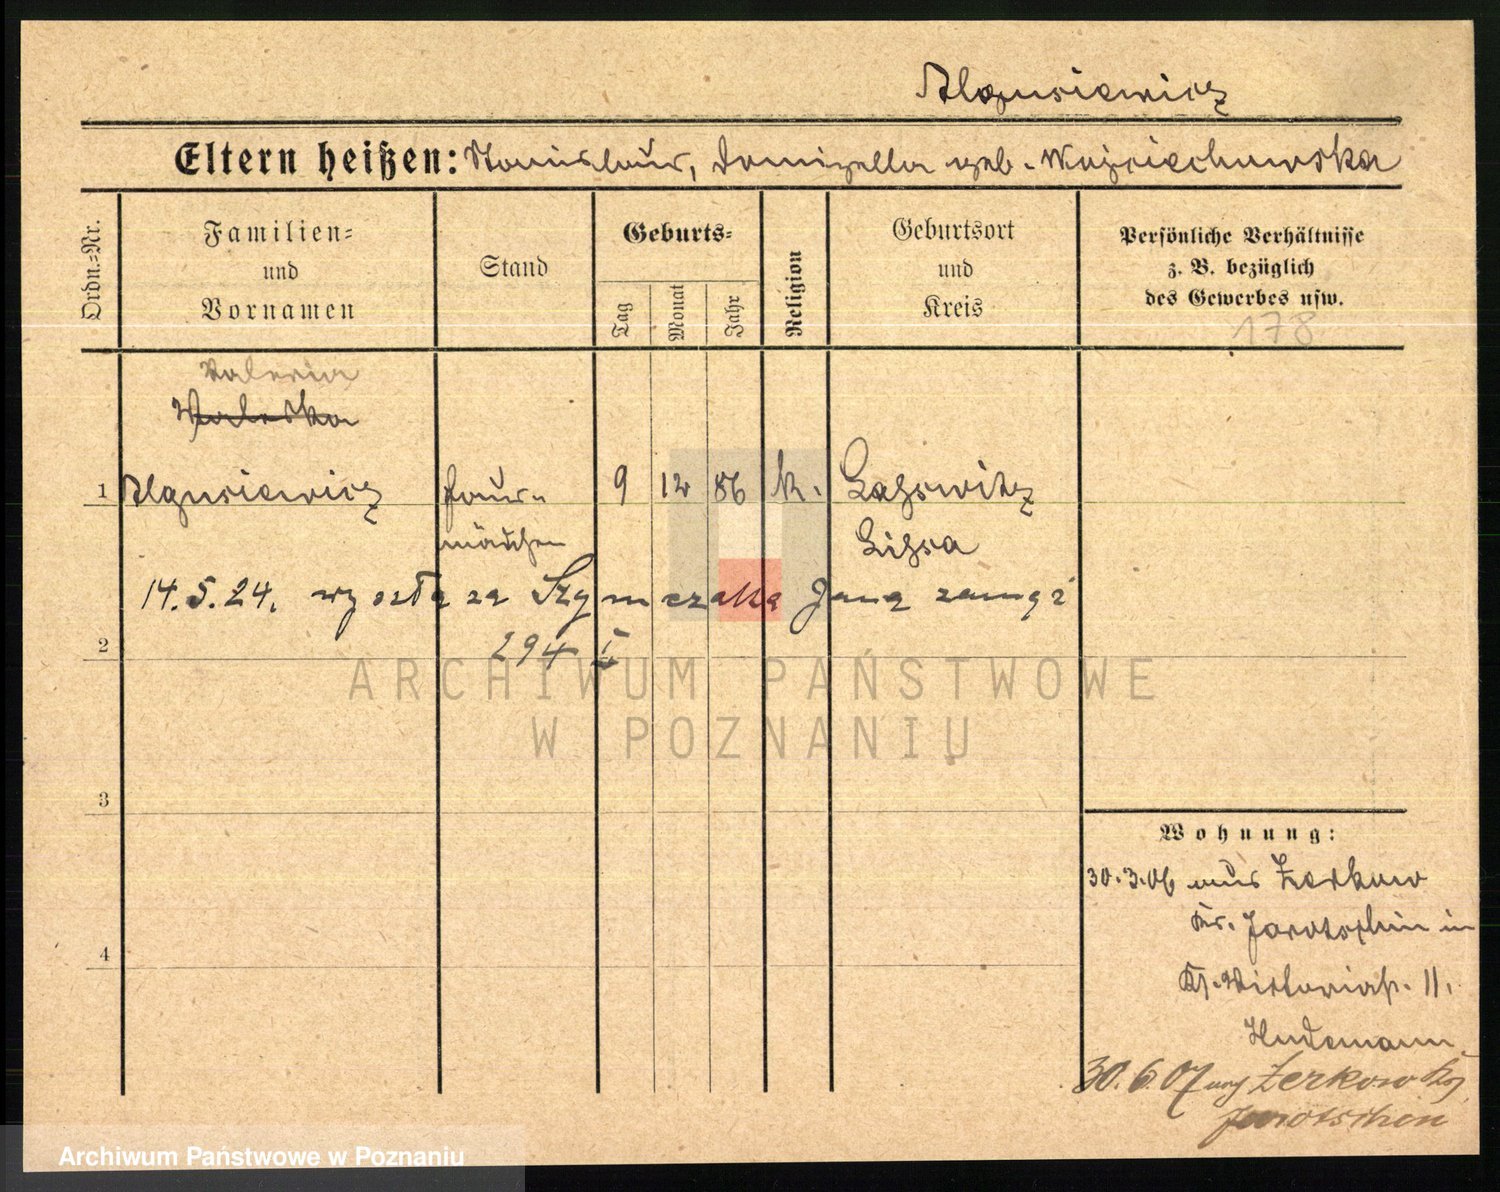 Algusiewicz
Eltern heißen: Stanislaus, Domizella geb. Wojciechowska
Ordn.=Nr.
Familien=
und
Vornamen
Stand
Geburts=
Tag
Monat
Jahr
Religion
Geburtsort
und
Kreis
Persönliche Verhältnisse
z. B. bezüglich
des Gewerbes usw.
178
Valeria
Waleska
1 Algusiewicz Haus- 9 12 86 k. Lasswitz
mädchen Lissa
14.5.24. wyszła za Szymczaka Jana zamąż
2 294
3
Wohnung:
30.3.06 aus Zerkow
Kr. Jarotschin in
4
Viktoriastr. 11.
30.6.07 nach Zerkow Krs
Jarotschin
ARCHIWUM PAŃSTWOWE
W POZNANIU
Archiwum Państwowe w Poznaniu